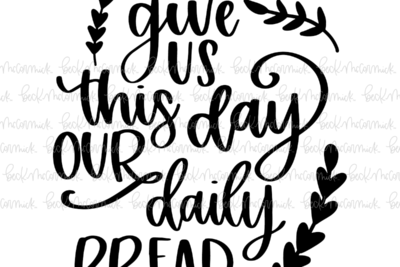 give
us
this day
OUR
daily
BREAD